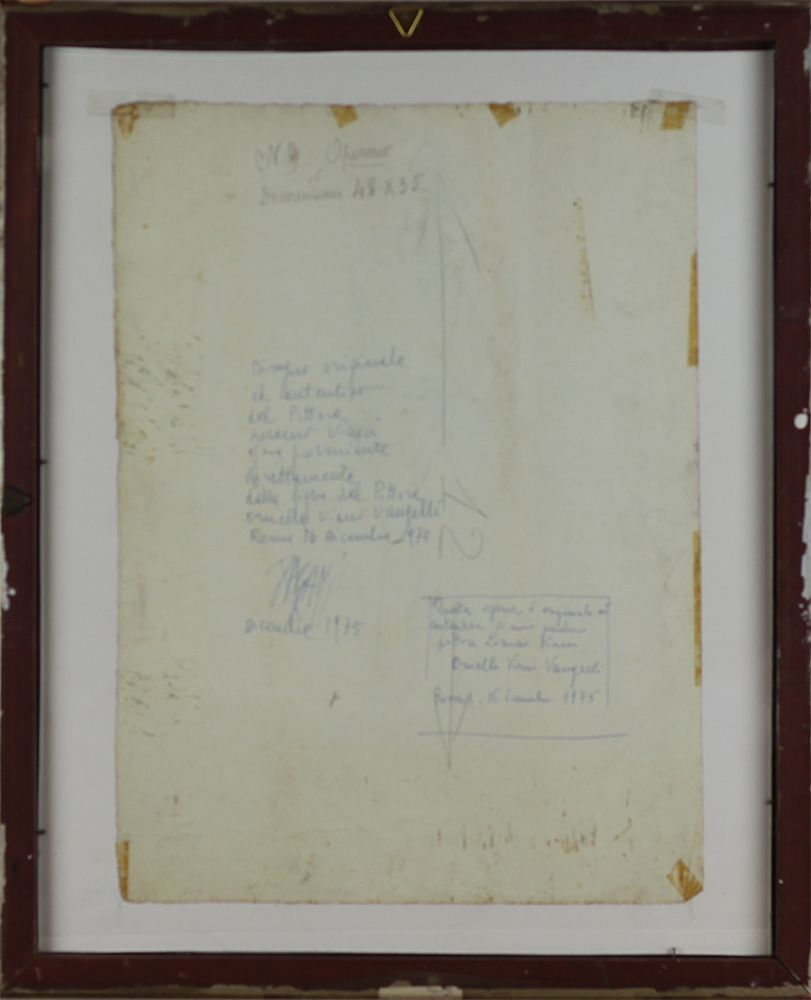 N. 9 Operaio
Dimensioni 48 X 35
Disegno originale
ed autentico
del Pittore
Lorenzo Viani
proveniente
direttamente
dalla figlia del Pittore
Ornella Viani Vangelli
Roma dicembre 1975
dicembre 1975
12
Questa opera è originale ed
autentica di mio padre
pittore Lorenzo Viani
Ornella Viani Vangelli
Roma, 16 dicembre 1975